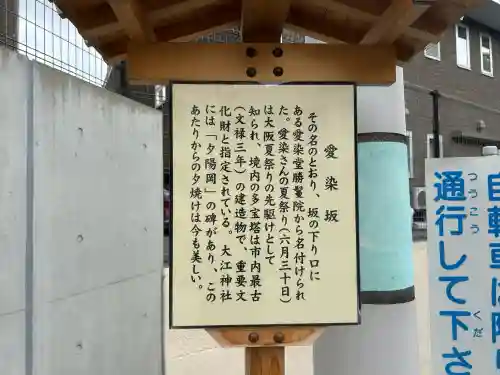 愛染坂
その名のとおり、坂の下り口に
ある愛染堂勝鬘院から名付けられ
た。愛染さんの夏祭り(六月三十日)
は大阪夏祭りの先駆けとして
知られ、境内の多宝塔は市内最古
(文禄三年)の建造物で、重要文
化財と指定されている。大江神社
には「夕陽岡」の碑があり、この
あたりからの夕焼けは今も美しい。
自転車は降
つうこう
通行して下さ
くだ